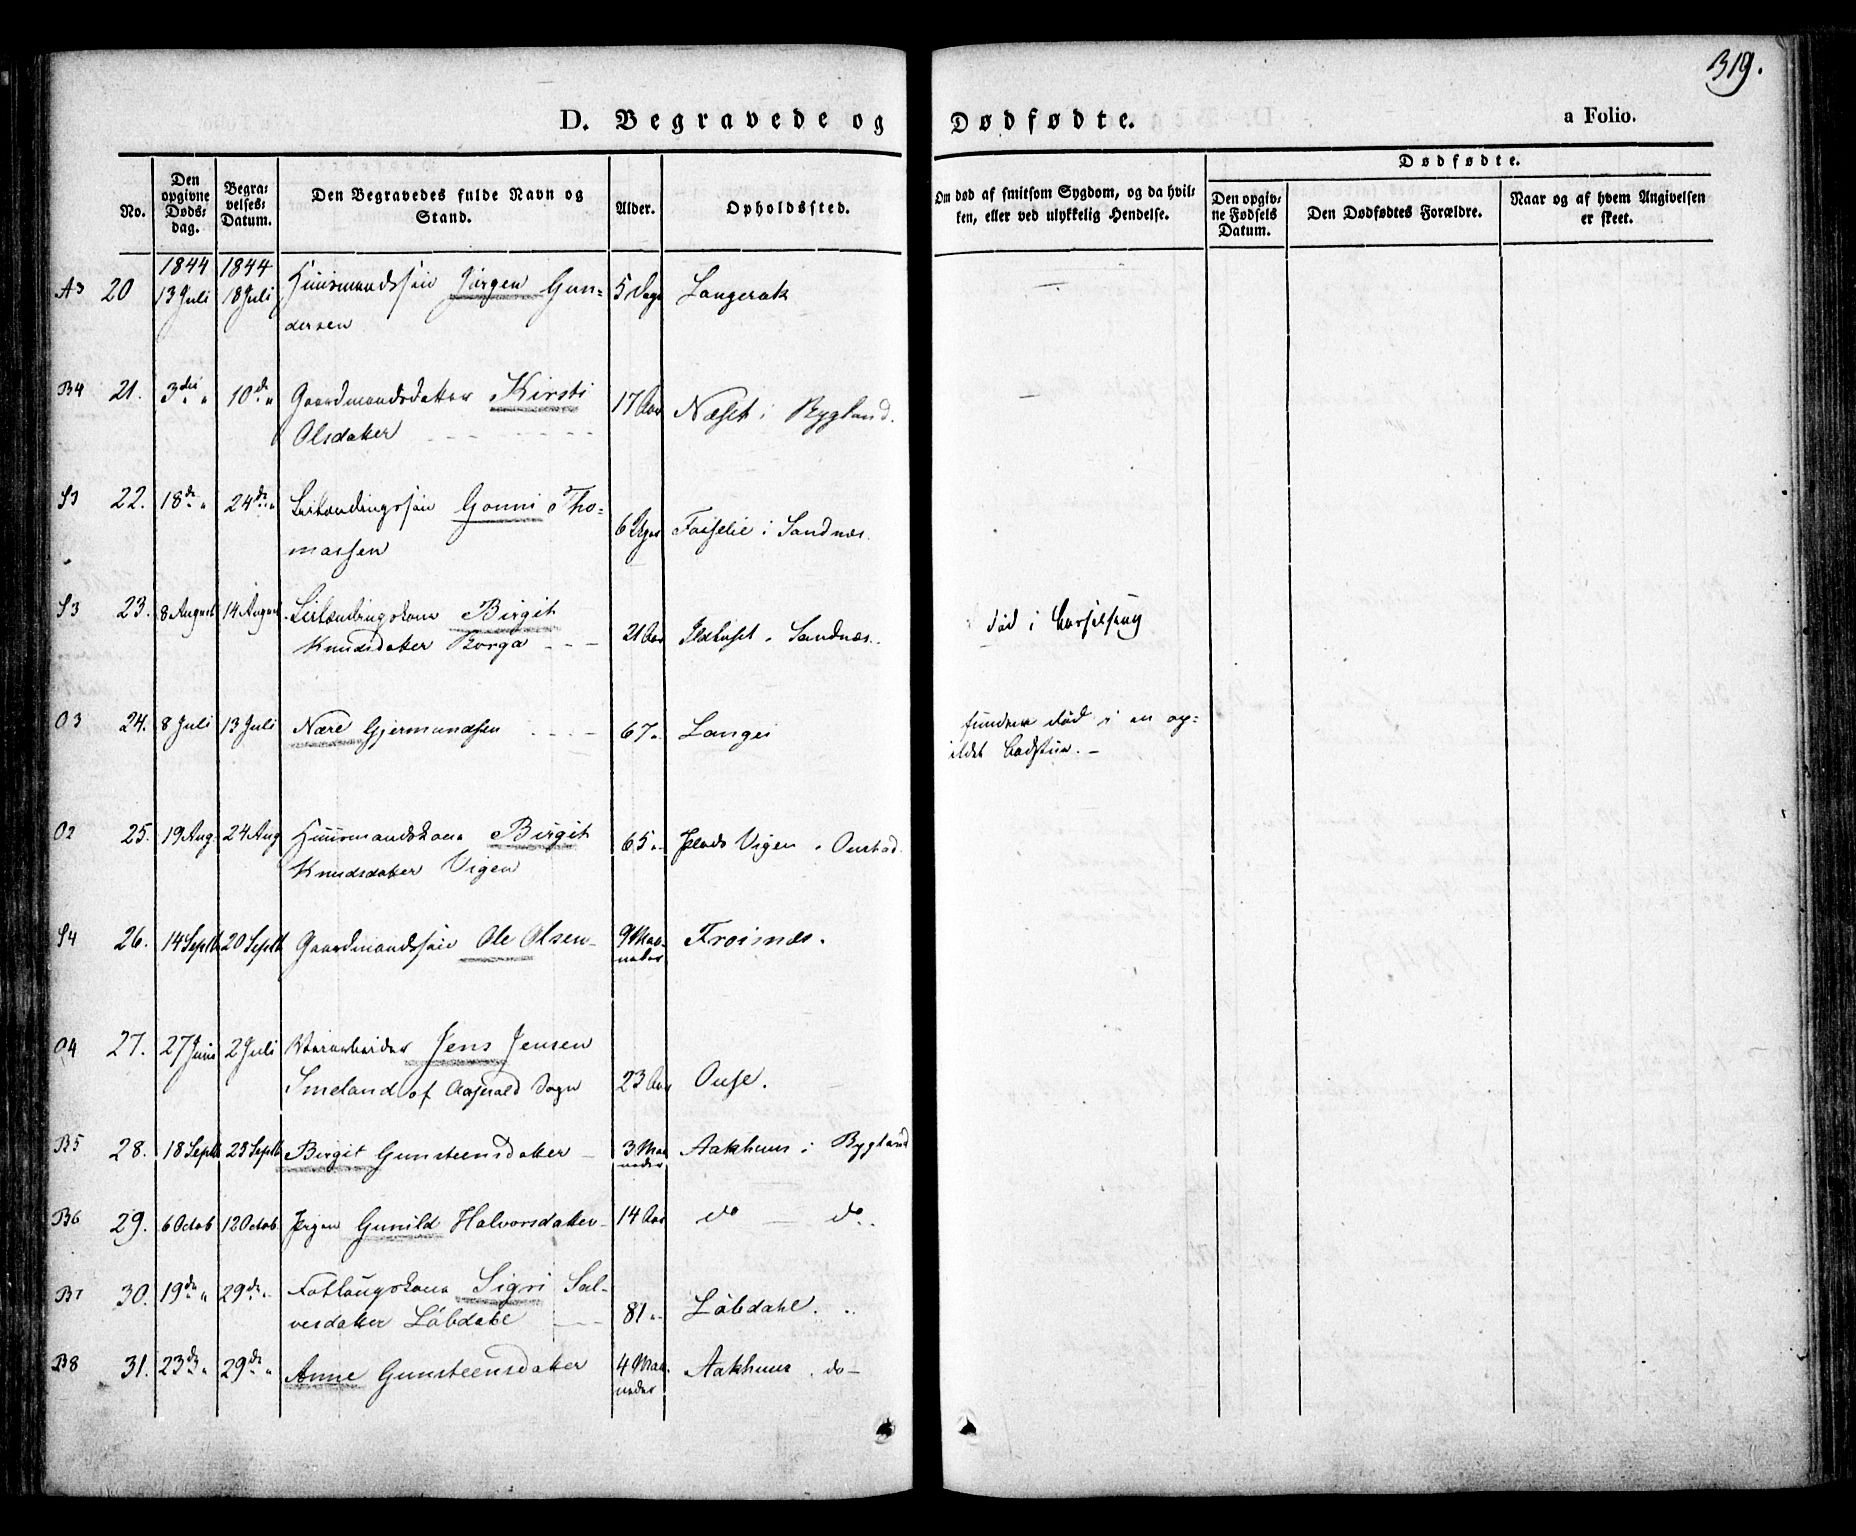 319.
D. Begravede og Dødfødte. a Folio.
No.
Den opgivne Døds-dag.
Begra-velses-Datum.
Den Begravedes fulde Navn og Stand.
Alder.
Opholdssted.
Om død af smitsom Sygdom, og da hvil-ken, eller ved ulykkelig Hendelse.
Dødfødte.
Den opgiv-ne Fødsels Datum.
Den Dødfødtes Forældre.
Naar og af hvem Angivelsen er skeet.
1844 1844
A3 20 13 Juli 18 Juli Huusmandssøn Jörgen Gun- 5 Dage Langerak
dersen
B4 21. 3die " 10de " Gaardmandsdatter Kirsti 17 Aar Næset i Bygland.
Olsdatter
S3 22. 18de " 24de " Gonni Tho- 6 Uger i Sandnæs.
massen
S3 23. 8 August 14 August Birgit 21 Aar Sandnæs. død i Barselseng
Knudsdatter Borga
O3 24. 8 Juli 13 Juli Nære Gjermundsen 67 " Langei funden død i en op-
ildet Badstue.
O2 25. 19 Aug. 24 Aug Huusmandskone Birgit 65 " Plads Vigen i Oustad.
Knudsdatter Vigen
S4 26. 14 Septb 20 Septb Gaardmandssøn Ole Olsen 9 Maa- Froisnæs.
neder
O4 27. 27 Juni 2 Juli Jens Jensen
Smeland af Aaserald Sogn 23 Aar Ouse.
B5 28. 18 Septb 23 Septb Birgit Gunsteensdatter 3 Maa- Aakhuus i Bygland
neder
B6 29. 6 Octob 12 Octob Pigen Gunild Halvorsdatter 14 Aar do — do.
B7 30. 19de " 29de " Sigri Sal- 81 " Löbdahl.
vesdatter Löbdahl
B8 31. 23de " 29de " Anne Gunsteensdatter 4 Maa- Aakhuus. do
neder